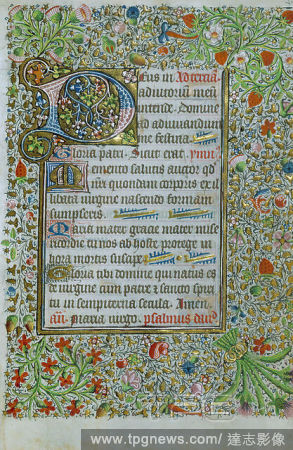 Deus in Ad tercia
adiutorium meu
intende. Domine
ad adiuvandum
me festina.
Gloria patri. Sicut erat. ymn
Memento salutis auctor qd
nri quondam corporis ex il
libata virgine nascendo formam
sumpseris.
Maria mater gracie mater mise
ricordie tu nos ab hoste protege in
hora mortis suscipe.
Gloria tibi domine qui natus es
de virgine cum patre et sancto spiri
tu in sempiterna secula. Amen.
an. Maria virgo. psalmus dd.
www.tpgnews.com/達志影像